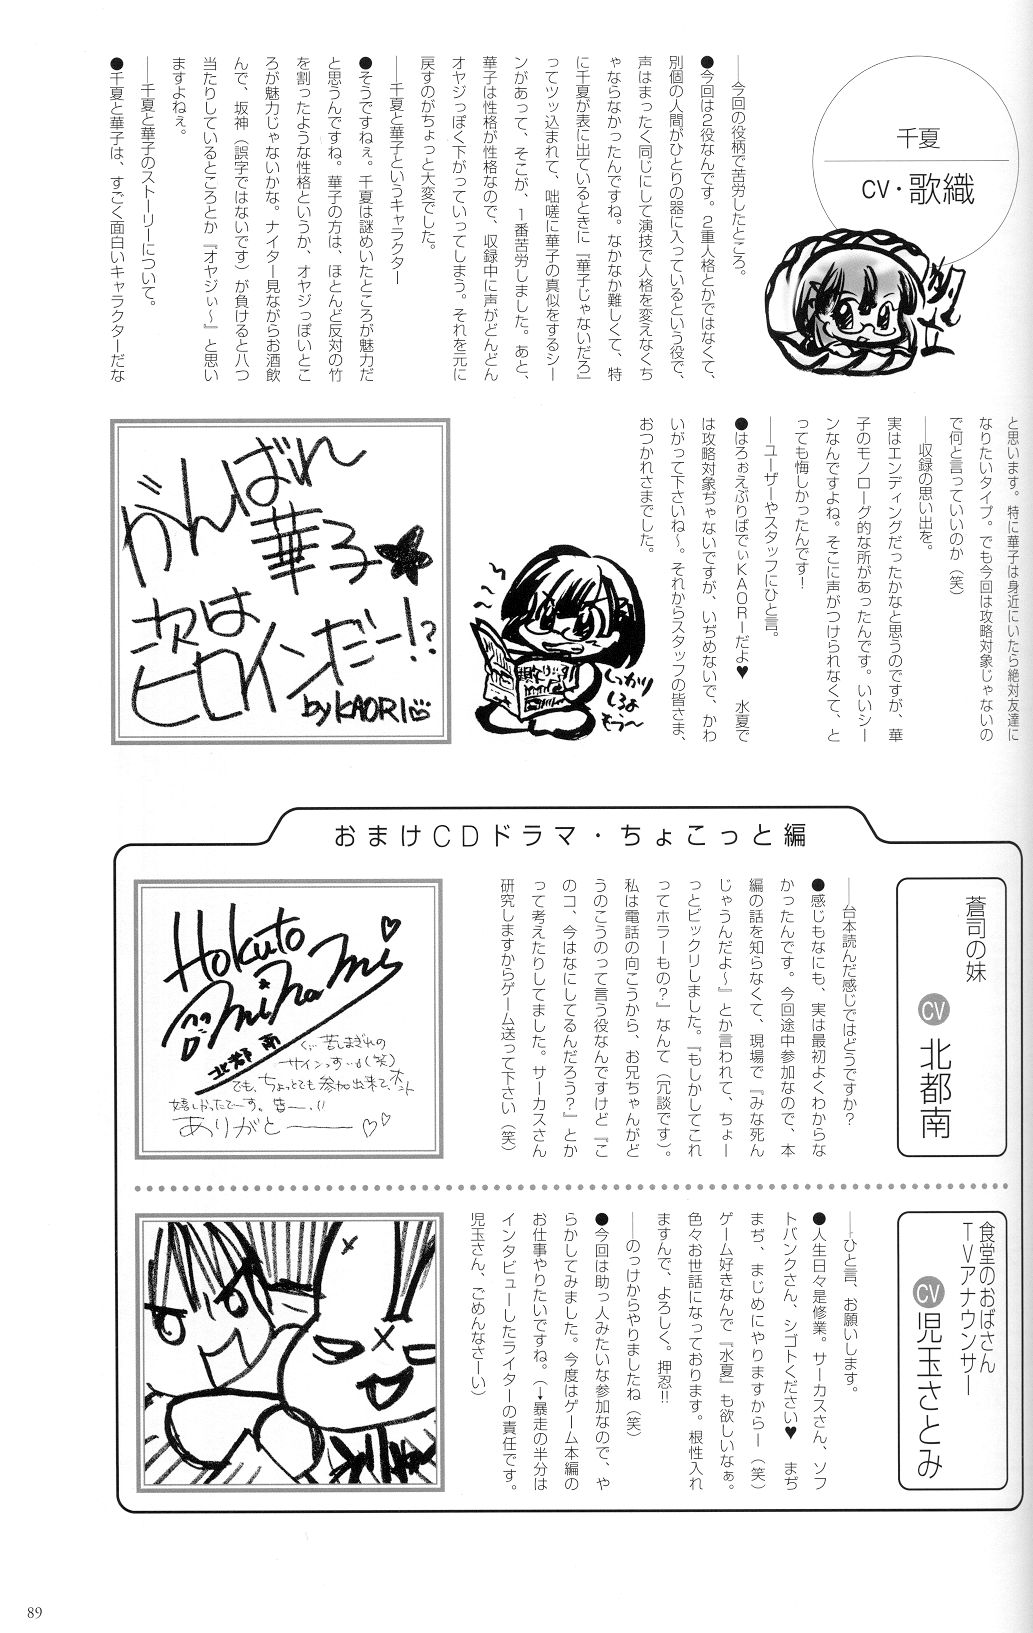 千夏
CV・歌織
──今回の役柄で苦労したところ。
●今回は2役なんです。2重人格とかではなくて、
別個の人間がひとりの器に入っているという役で、
声はまったく同じにして演技で人格を変えなくち
ゃならなかったんですね。なかなか難しくて、特
に千夏が表に出ているときに『華子じゃないだろ』
ってツッ込まれて、咄嗟に華子の真似をするシー
ンがあって、そこが、1番苦労しました。あと、
華子は性格が性格なので、収録中に声がどんどん
オヤジっぽく下がっていってしまう。それを元に
戻すのがちょっと大変でした。
──千夏と華子というキャラクター
●そうですねぇ。千夏は謎めいたところが魅力だ
と思うんですね。華子の方は、ほとんど反対の竹
を割ったような性格というか、オヤジっぽいとこ
ろが魅力じゃないかな。ナイター見ながらお酒飲
んで、坂神（誤字ではないです）が負けると八つ
当たりしているところとか『オヤジぃ〜』と思い
ますよねぇ。
──千夏と華子のストーリーについて。
●千夏と華子は、すごく面白いキャラクターだな
と思います。特に華子は身近にいたら絶対友達に
なりたいタイプ。でも今回は攻略対象じゃないの
で何と言っていいのか（笑）
──収録の思い出を。
実はエンディングだったかなと思うのですが、華
子のモノローグ的な所があったんです。いいシー
ンなんですよね。そこに声がつけられなくて、と
っても悔しかったんです！
──ユーザーやスタッフにひと言。
●はろぉえぶりばでぃKAORIーだよ♥　水夏で
は攻略対象ぢゃないですが、いぢめないで、かわ
いがって下さいね〜。それからスタッフの皆さま、
おつかれさまでした。
しっかり
しろよ
もう〜
がんばれ
華子★
次は
ヒロインだー!?
by KAORI
おまけCDドラマ・ちょこっと編
蒼司の妹
CV 北都南
──台本読んだ感じではどうですか？
●感じもなにも、実は最初よくわからな
かったんです。今回途中参加なので、本
編の話を知らなくて、現場で『みな死ん
じゃうんだよ〜』とか言われて、ちょー
っとビックリしました。『もしかしてこれ
ってホラーもの？』なんて（冗談です）。
私は電話の向こうから、お兄ちゃんがど
うのこうのって言う役なんですけど『こ
のコ、今はなにしてるんだろう？』とか
って考えたりしてました。サーカスさん
研究しますからゲーム送って下さい（笑）
Hokuto
Minami
北都南
ぐ…苦しまぎれの
サインっす…(笑)
でも、ちょっとでも参加出来て、ホント
嬉しかったでーす。皆ー、!!
ありがとー♡♡
食堂のおばさん
TVアナウンサー
CV 児玉さとみ
──ひと言、お願いします。
●人生日々是修業。サーカスさん、ソフ
トバンクさん、シゴトください♥　まぢ
まぢ、まじめにやりますからー（笑）
ゲーム好きなんで『水夏』も欲しいなぁ。
色々お世話になっております。根性入れ
ますんで、よろしく。押忍!!
──のっけからやりましたね（笑）
●今回は助っ人みたいな参加なので、や
らかしてみました。今度はゲーム本編の
お仕事やりたいですね。（→暴走の半分は
インタビューしたライターの責任です。
児玉さん、ごめんなさーい）
89